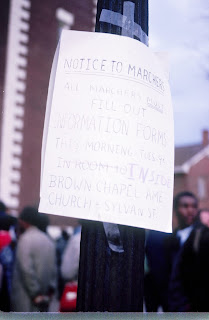 NOTICE TO MARCHER
ALL MARCHERS PLEASE
FILL OUT
INFORMATION FORMS
MORNING
IN ROOM INSIDE
BROWN CHAPEL AME
CHURCH SYLVAN ST